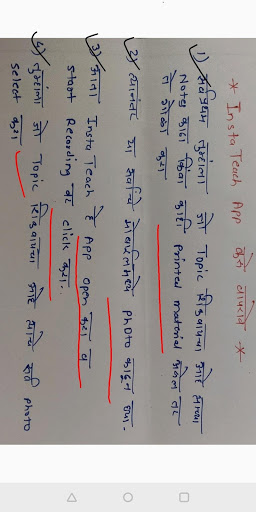 * Insta Teach App कसे वापरावे *
1) सर्वप्रथम तुम्हांला जो Topic शिकवायचा आहे त्याच्या
Notes काढा किंवा काही Printed material असेल तर
ते गोळा करा
2) त्यानंतर या सर्वांचे मोबाईलमध्ये Photo काढून घ्या.
3) आता Insta Teach हे App open करा व
start Recording वर click करा.
4) तुम्हांला जो Topic शिकवायचा आहे त्याचे सर्व photo
select करा